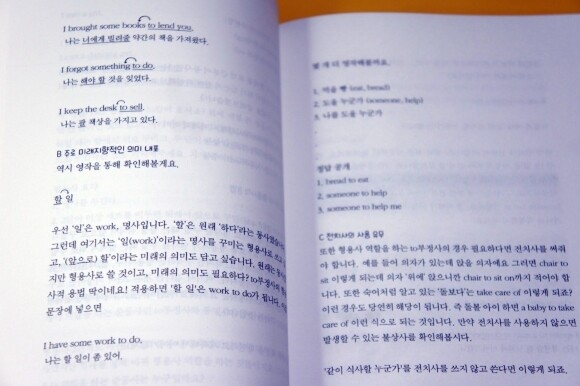 I brought some books to lend you.
나는 너에게 빌려줄 약간의 책을 가져왔다.
I forgot something to do.
나는 해야 할 것을 잊었다.
I keep the desk to sell.
나는 팔 책상을 가지고 있다.
B 주로 미래지향적인 의미 내포
역시 영작을 통해 확인해볼게요.
할 일
우선 '일'은 work, 명사입니다. '할'은 원래 '하다'라는 동사였습
그런데 여기서는 '일(work)'이라는 명사를 꾸미는 형용사로 쓰
고, '(앞으로) 할'이라는 미래의 의미도 담고 싶습니다. 원래는 동사
지만 형용사로 쓸 것이고, 미래의 의미도 필요하다? to부정사의 형
사적 용법 딱이네요! 적용하면 '할 일'은 work to do가 됩니다.
문장에 넣으면
I have some work to do.
나는 할 일이 좀 있어.
몇 개 더 영작해볼까요.
1. 먹을 빵 (eat, bread)
2. 도울 누군가 (someone, help)
3. 나를 도울 누군가
정답 공개
1. bread to eat
2. someone to help
3. someone to help me
C 전치사의 사용 유무
또한 형용사 역할을 하는 to부정사의 경우 필요하다면 전치사를 써줘
야 합니다. 예를 들어 의자가 있는데 앉을 의자예요. 그러면 chair to
sit 이렇게 되는데 의자 '위에' 앉으니깐 chair to sit on까지 적어야 합
니다. 또한 숙어처럼 알고 있는 '돌보다'는 take care of 이렇게 되죠?
이런 경우도 당연히 해당이 됩니다. 즉 돌볼 아이 하면 a baby to take
care of 이런 식으로 되는 것입니다. 만약 전치사를 사용하지 않으면
발생할 수 있는 불상사를 확인해봅시다.
'같이 식사할 누군가'를 전치사를 쓰지 않고 쓴다면 이렇게 되죠.